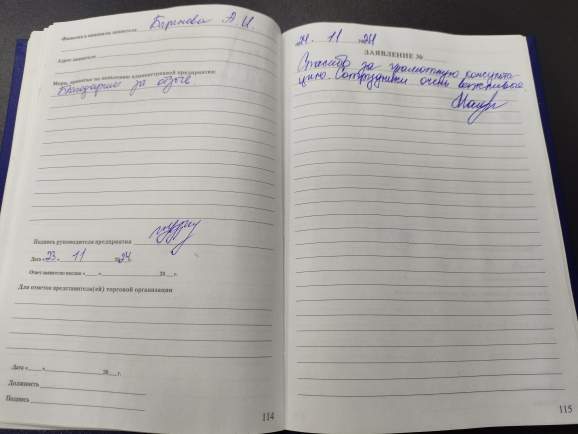 Фамилия и инициалы заявителя Баринова А И.
Адрес заявителя
Меры, принятые по заявлению администрацией предприятия:
Благодарим за отзыв
Подпись руководителя предприятия
Дата «23» 11 2024 г.
Ответ заявителю послан «___» ______ 20__ г.
Для отметок представителя(ей) торговой организации
Дата «___» ______ 20__ г.
Должность
Подпись
114
21. 11 24
ЗАЯВЛЕНИЕ №
Спасибо за грамотную консульта-
цию. Сотрудники очень вежливые
115